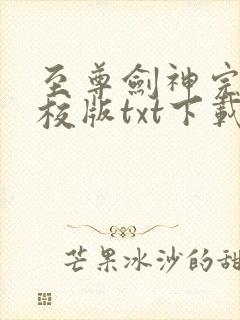 至尊劍神完
校版txt下載
芒果冰沙的甜